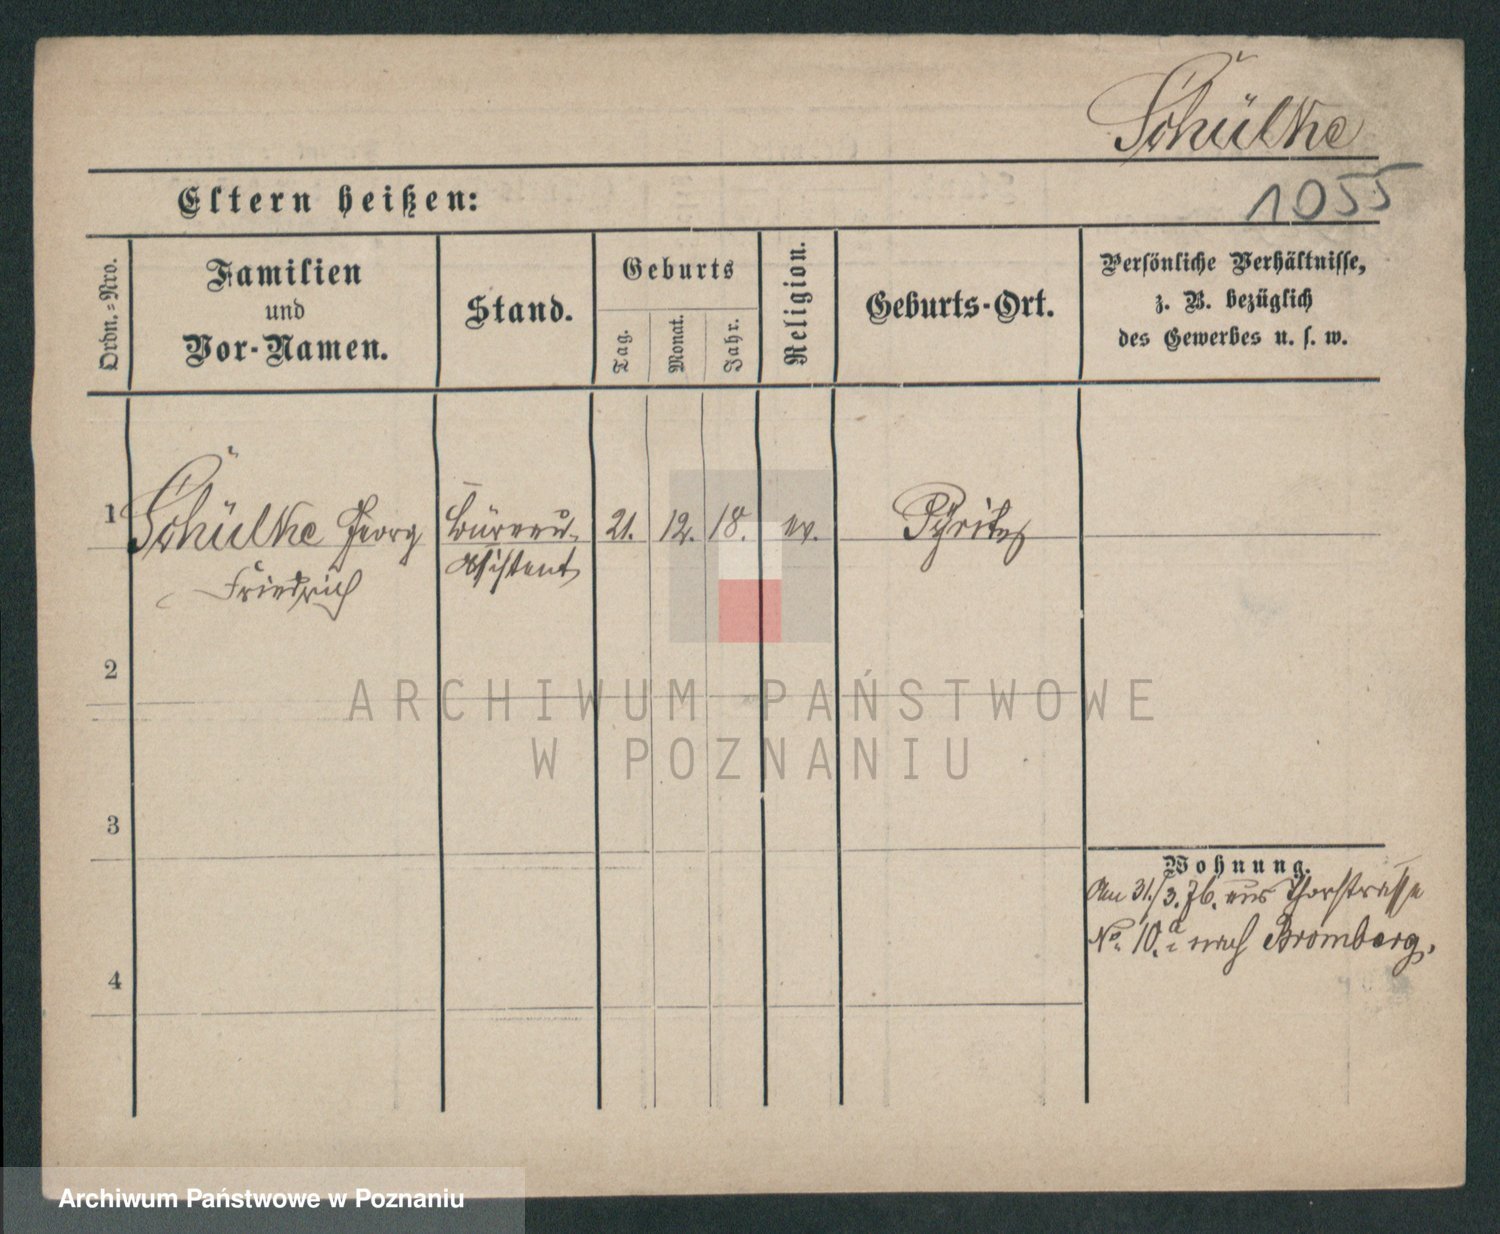 Schülke
1055
Eltern heißen:
Ordn.-Nro.
Familien
und
Vor-Namen.
Stand.
Geburts
Tag.
Monat.
Jahr.
Religion.
Geburts-Ort.
Persönliche Verhältnisse,
z. B. bezüglich
des Gewerbes u. s. w.
1 Schülke Georg Büreau- 21. 12. 18. ev. Pyritz
Friedrich Assistent
2
ARCHIWUM PAŃSTWOWE
W POZNANIU
3
Wohnung.
Am 31./3. 76. aus Thorstrasse
No. 10.a nach Bromberg.
4
Archiwum Państwowe w Poznaniu